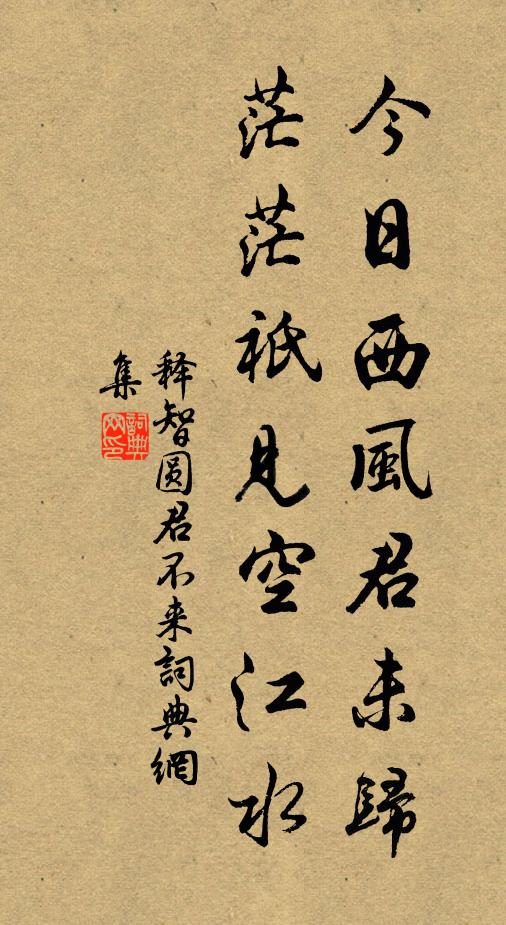 今日西風君未歸
茫茫祇見空江水
释智圆君不来詞典網
集
詞典网印